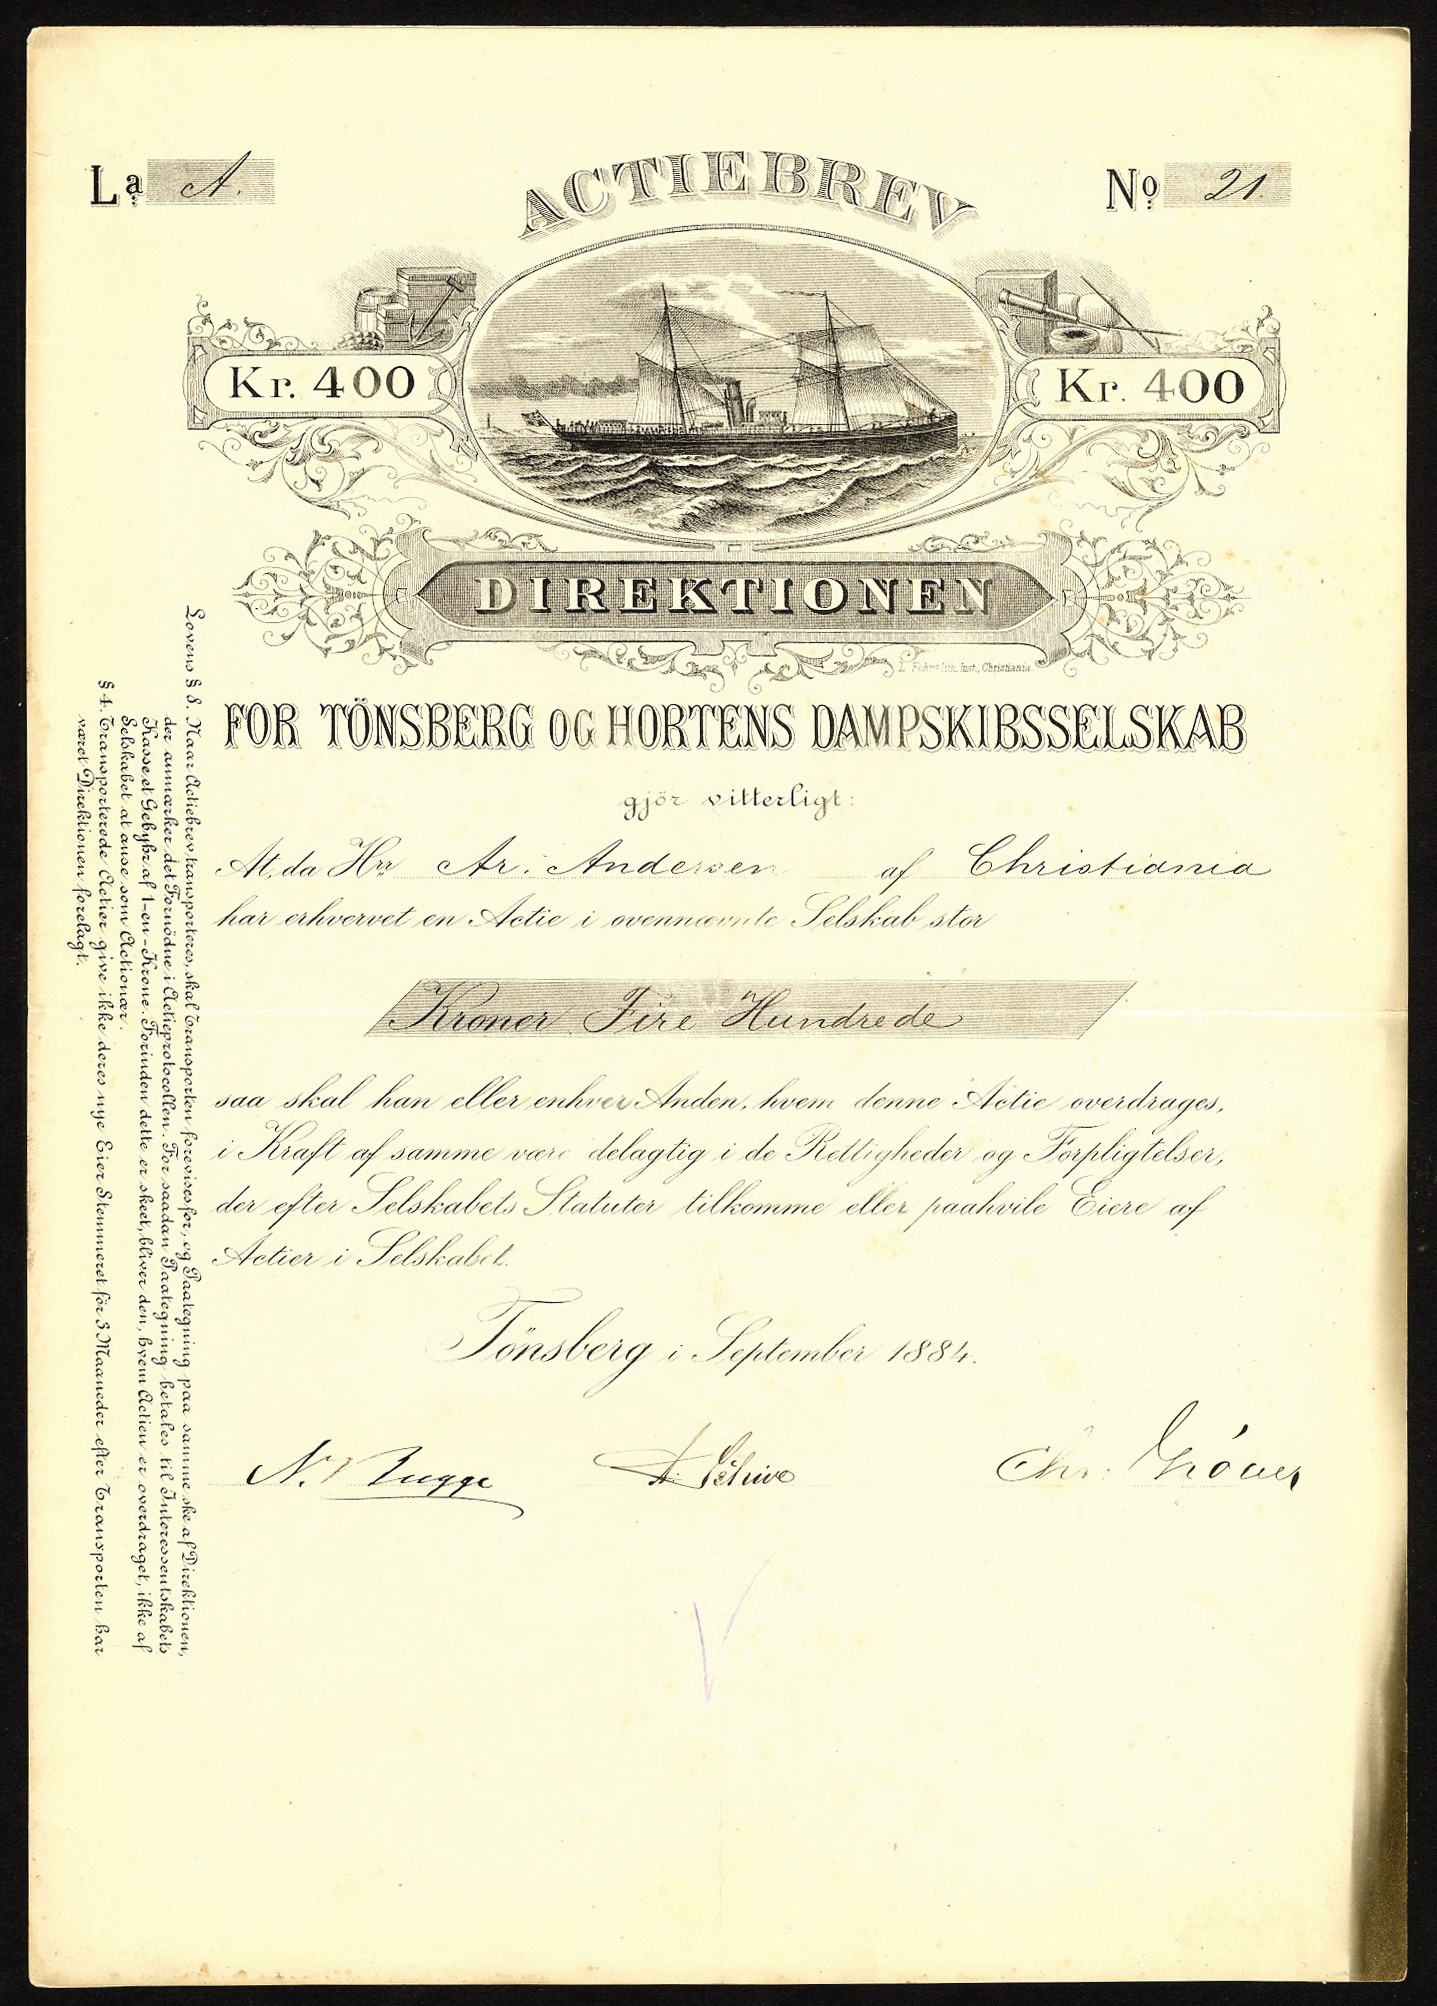 La. A.
ACTIEBREV
No. 21.
Kr. 400
Kr. 400
DIREKTIONEN
L. Fehr's lith. Inst., Christiania.
FOR TÖNSBERG OG HORTENS DAMPSKIBSSELSKAB
gjör vitterligt:
At, da Hrr Ar. Andersen af Christiania
har erhvervet en Actie i ovennævnte Selskab stor
Kroner Fire Hundrede
saa skal han eller enhver Anden, hvem denne Actie overdrages,
i Kraft af samme være delagtig i de Rettigheder og Forpligtelser,
der efter Selskabets Statuter tilkomme eller paahvile Eiere af
Actier i Selskabet.
Tönsberg i September 1884.
N. Bugge Schive Chr.
Lovens § 8. Naar Actiebrev transporteres, skal Transporten forevises for, og Paategning paa samme ske af Direktionen,
der anmærker det Fornödne i Actieprotocollen. For saadan Paategning betales til Interessentskabets
Kasse et Gebyhr af 1-en-Krone. Forinden dette er skeet, bliver den, hvem Actien er overdraget, ikke af
Selskabet at anse som Actionær.
§ 4. Transporterede Actier give ikke deres nye Eier Stemmeret för 3 Maaneder efter Transporten har
været Direktionen forelagt.